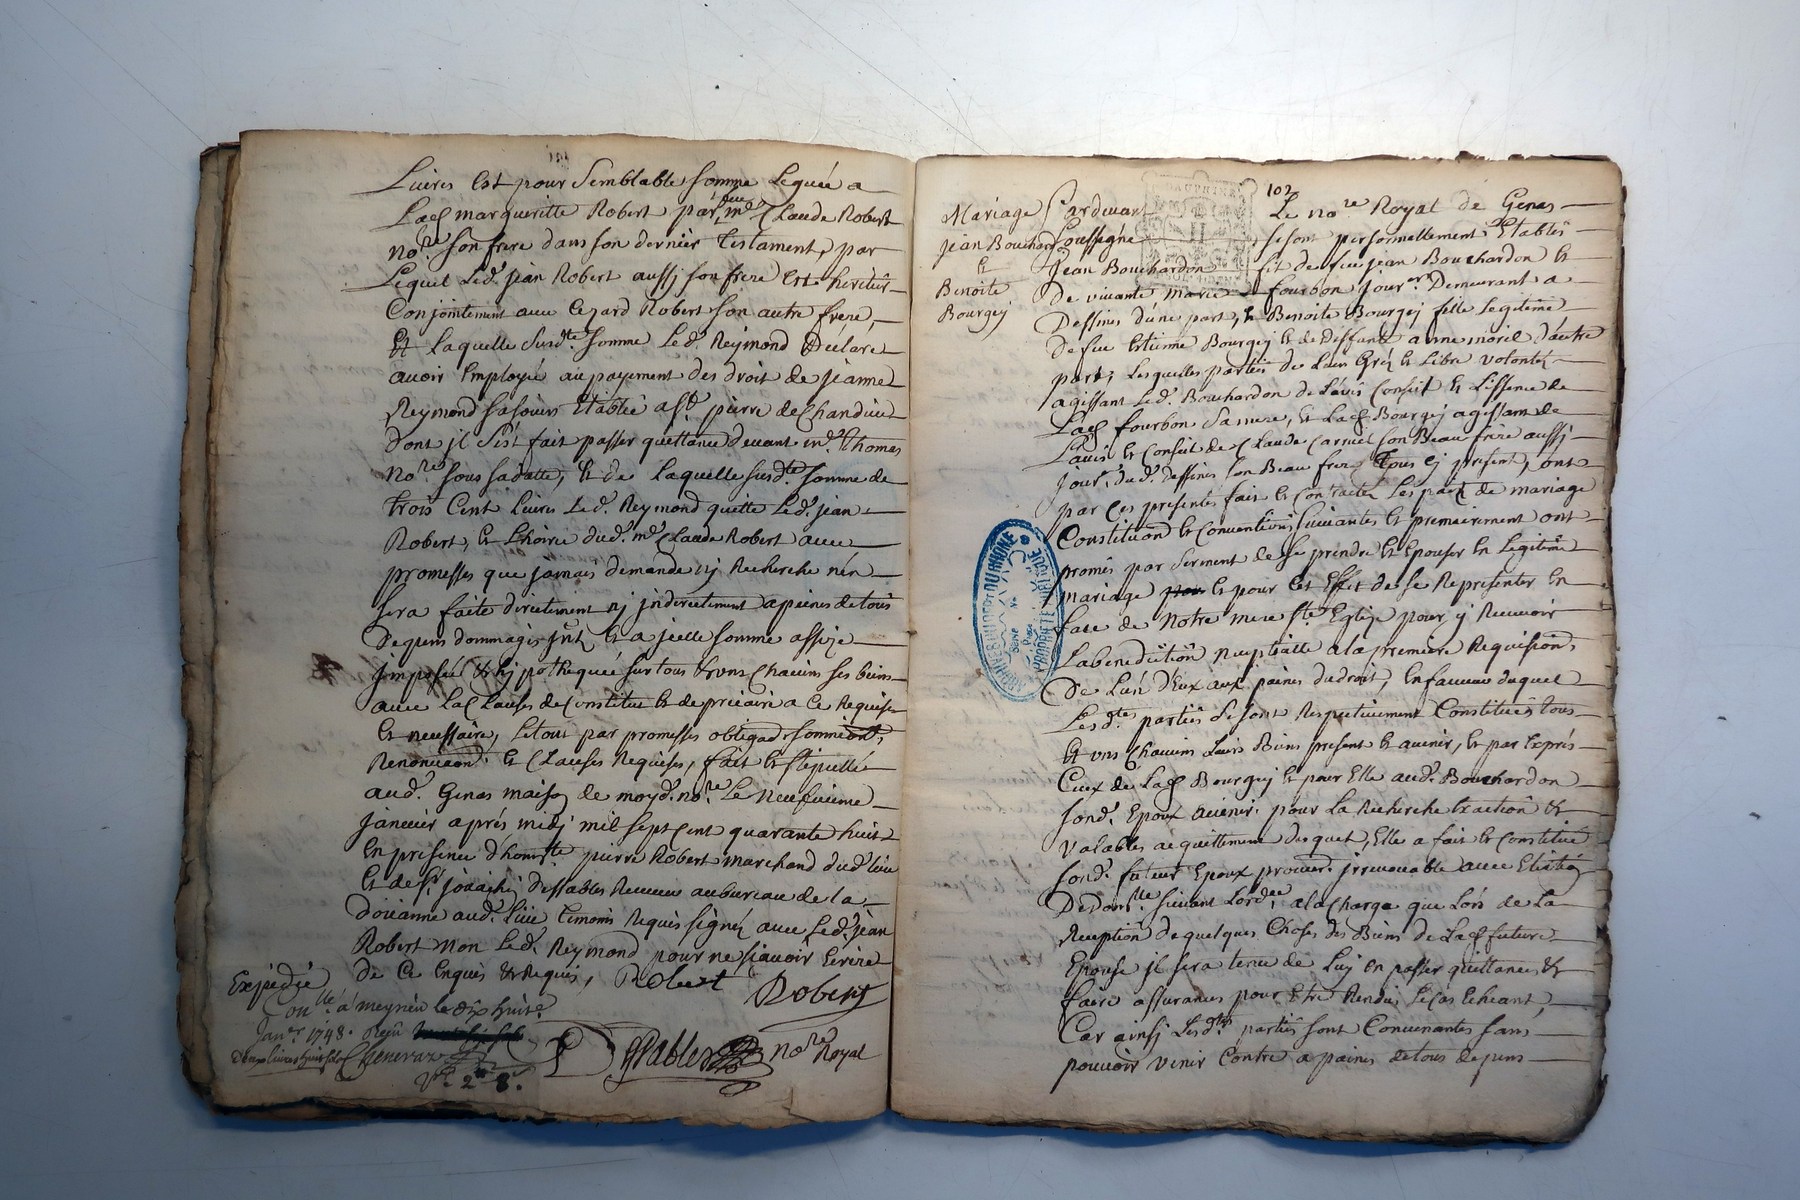 Livres Est pour Semblable Somme Leguée a
Lad. margueritte Robert par feu me. Claude Robert
nore. Son frere dans Son dernier Testament, par
Lequel Led. jean Robert aussj Son frere Est heritier
Conjointement avec Cezard Robert Son autre frere,
Et Laquelle Susdte. Somme Led. Reymond Déclare
avoir Employé au payement des droit de jeanne
Reymond Sa Soeur Etablie a St. pierre de Chandieu
Dont jl S'est fait passer quettance devant me. Thomas
Nore. Sous Sa datte, Et de Laquelle Susdte. Somme de
Trois Cent Livres Led. Reymond quitte Led. jean
Robert, Et Lhoirie dud. me. Claude Robert avec
promesses que jamais demande nj Recherche n'en
Sera faite directement nj jndirectement a peines de tous
Depens dommages jnt. Et a jcelle Somme assize
jmposée Et hjpothequée Sur tous Et uns Chacuns Ses biens
avec La Clauses de Constitut Et de precaire a Ce Requise
Et necessaire, Letout par promesses obligaon. Soumiōn,
Renonciaon. Et Clauses Requises, fait Et Stipullé
aud. Genas maison de moyd. nore. Le neufvieme
janvier aprés midj mil Sept Cent quarante huit
En presence d'honnste. pierre Robert marchand dud. Lieu
Et de Sr. joachij Dessables Receveur au bureau de la
Doüanne aud. Lieu temoins Requis Signéz avec Led. jean
Robert non Led. Reymond pour ne Sçavoir Ecrire
De Ce Enquis Et Requis, Robert Robert
Expedié
Conlle. á meyzieu le dix huite.
Janer. 1748. Reçû
deux livres huit Sols Cheneraz
Dessables nore. Royal
102
Mariage
jean Bouchardon
Et
Benoite
Bourgej
Pardevant Le nore. Royal de Genas
Soussigné Se sont personnellement Etablis
Jean Bouchardon fils de feu jean Bouchardon Et
De vivante marie fourbon jourer. Demeurant a
Dessines d'une part, Et Benoite Bourgej fille Legitime
De feu Estienne Bourgej Et de Deffunte anne moril D'autre
part, Lesquelles parties de Leur Gréz Et Libre volontéz
agissant Led. Bouchardon de L'avis Conseil Et Lissence de
Lad. fourbon Sa mere, Et Lad. Bourgej agissant de
L'avis Et Conseil de Claude Carmet Son Beau frere aussj
jour. dud. Dessines Son Beau frere tous cj present, ont
par Ces presentes fait Et Contracter Les pact de mariage
Constitution Et Conventions Suivantes Et premierement ont
promis par Serment de Se prendre Et Epouser En Legitime
mariage Et pour Cet Effet de Se Representer En
face de Notre mere Ste. Eglize pour y Recevoir
La benediction nuptialle a la premiere Requision
De L'un D'Eux aux paines du droit, En faveur duquel
Lesdtes. parties Se sont Respectivement Constituées tous
Et uns Chacuns Leurs Biens present Et avenir, Et par Exprés
Ceux de Lad. Bourgej Et pour Elle aud. Bouchardon
Sond. Epoux avenir. pour La Recherche Exaction Et
valables acquittement desquels, Elle a fait Et Constitué
Sond. futeur Epoux procur. jrrevocable avec Election
De Domlle. Suivant Lordce. a la Charge que Lors de La
Reception de quelques Choses des Biens de Lad. future
Epouse jl Sera tenu de Luj En passer quittances Et
faire assurances pour Etre Rendu, Le Cas Echeant,
Car ainsj Lesdtes. parties Sont Convenantes Sans
pouvoir venir Contre a paines de tous depens